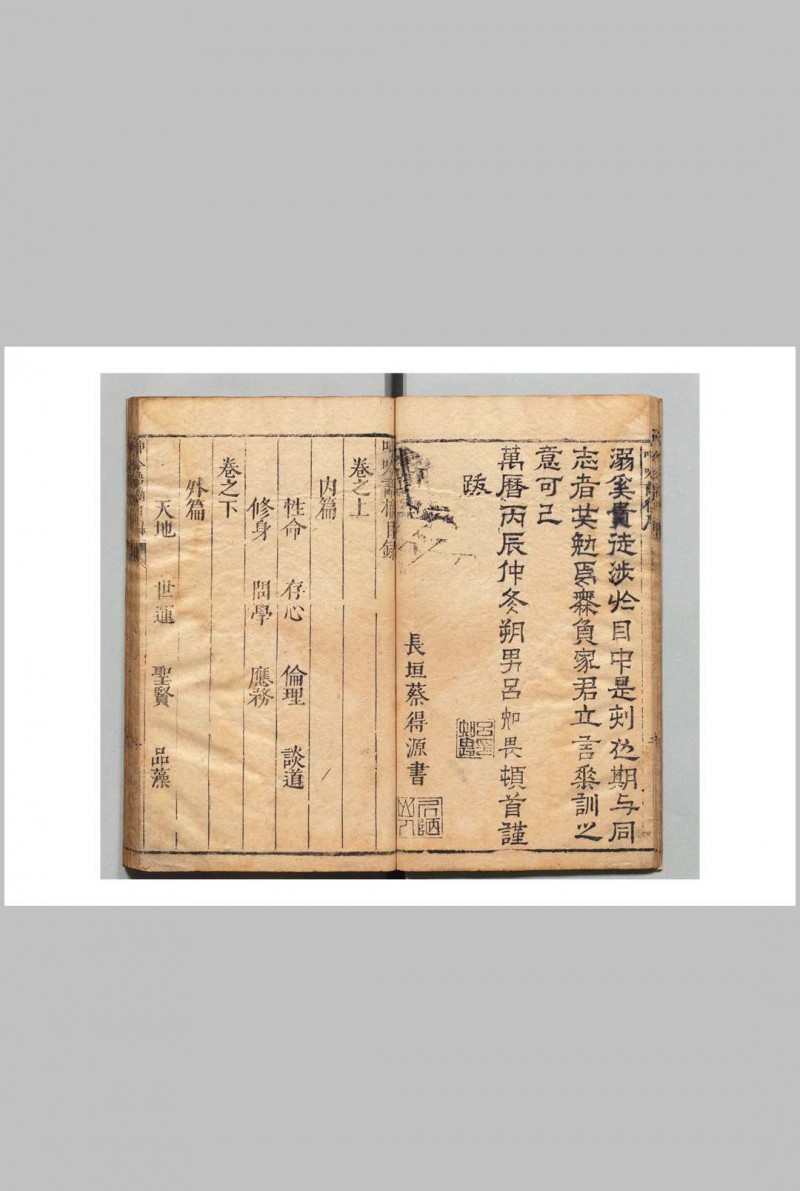 溺奚貴徒涉
目中是刻
期与同
志者共勉
負家君立言垂訓之
意可已
萬曆丙辰仲冬朔男呂知畏頓首謹
跋
長垣蔡得源書
呻吟語摘目錄
卷之上
內篇
性命 存心 倫理 談道
修身 問學 應務
卷之下
外篇
天地 世運 聖賢 品藻